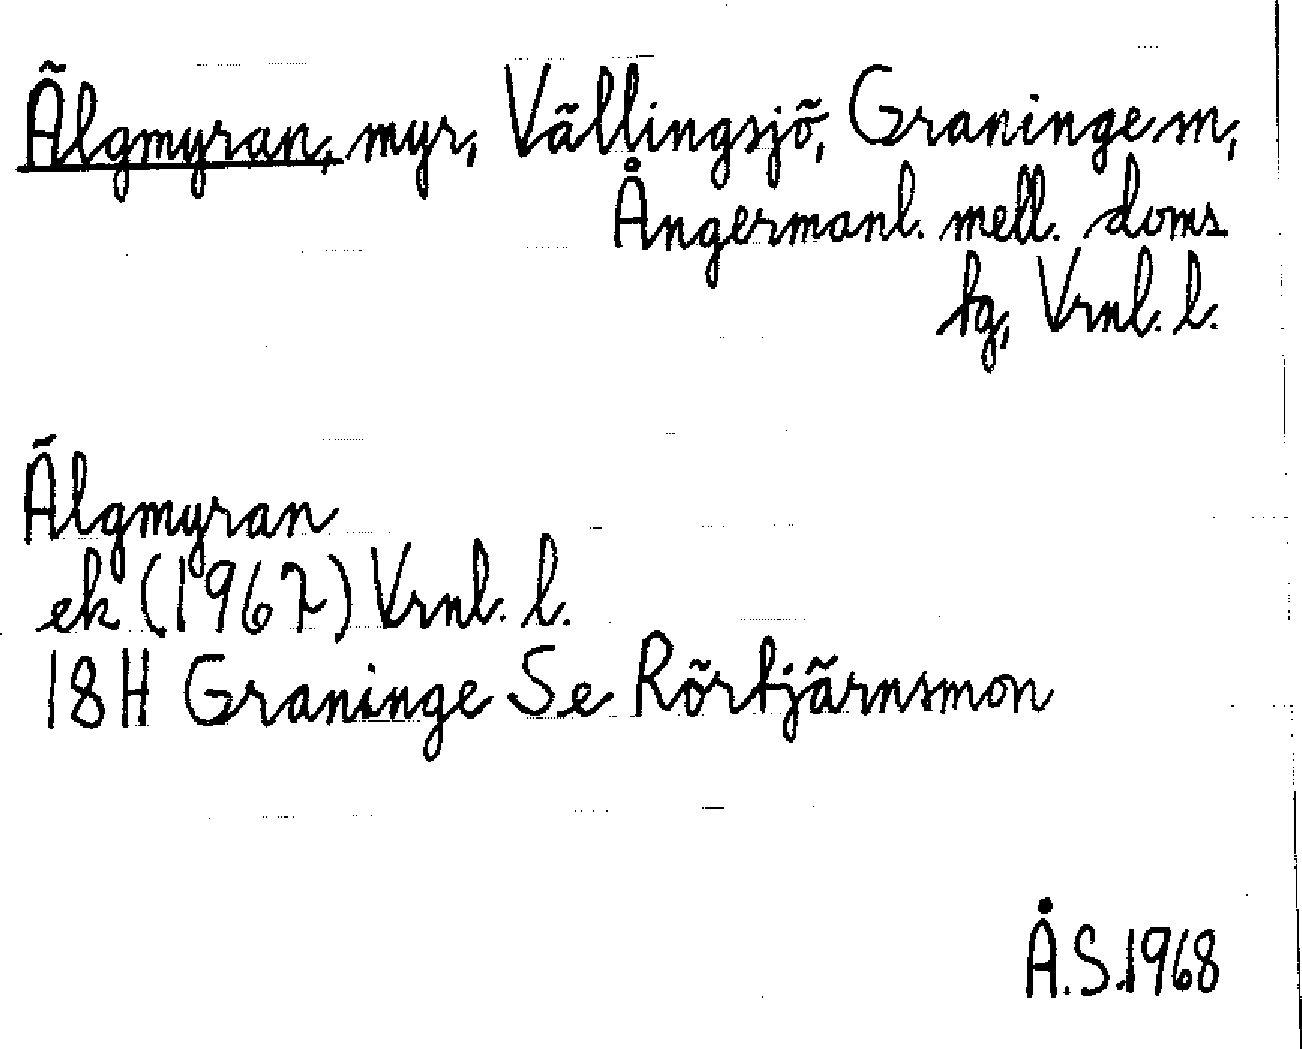 Älgmyran, myr, Vällingsjö, Graninge sn,
Ångermanl. mell. doms
tg, Vrnl. l.
Älgmyran
ek (1967) Vrnl. l.
18H Graninge Se Rörtjärnsmon
Å.S.1968